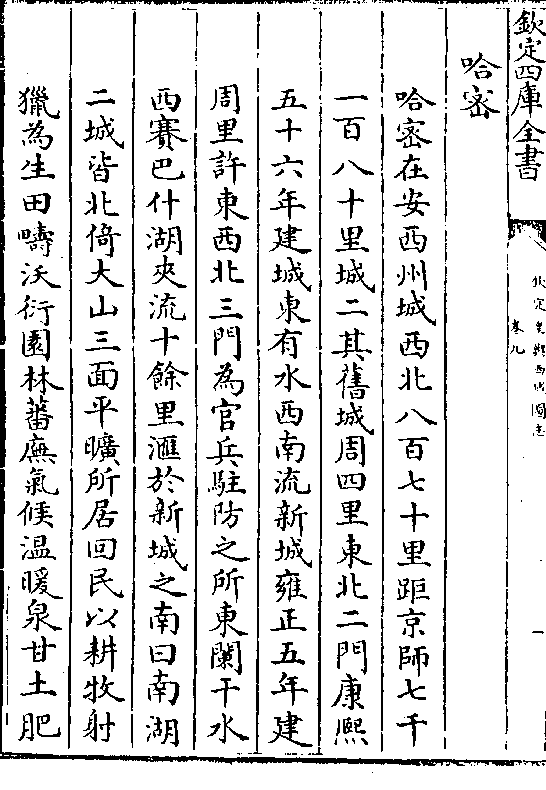 欽定四庫全書
欽定皇輿西域圖志
卷九
一
哈密
哈密在安西州城西北八百七十里距京師七千
一百八十里城二其舊城周四里東北二門康熙
五十六年建城東有水西南流新城雍正五年建
周里許東西北三門為官兵駐防之所東闌干水
西賽巴什湖夾流十餘里滙於新城之南曰南湖
二城皆北倚大山三面平曠所居回民以耕牧射
獵為生田疇沃衍園林蕃廡氣候溫暖泉甘土肥